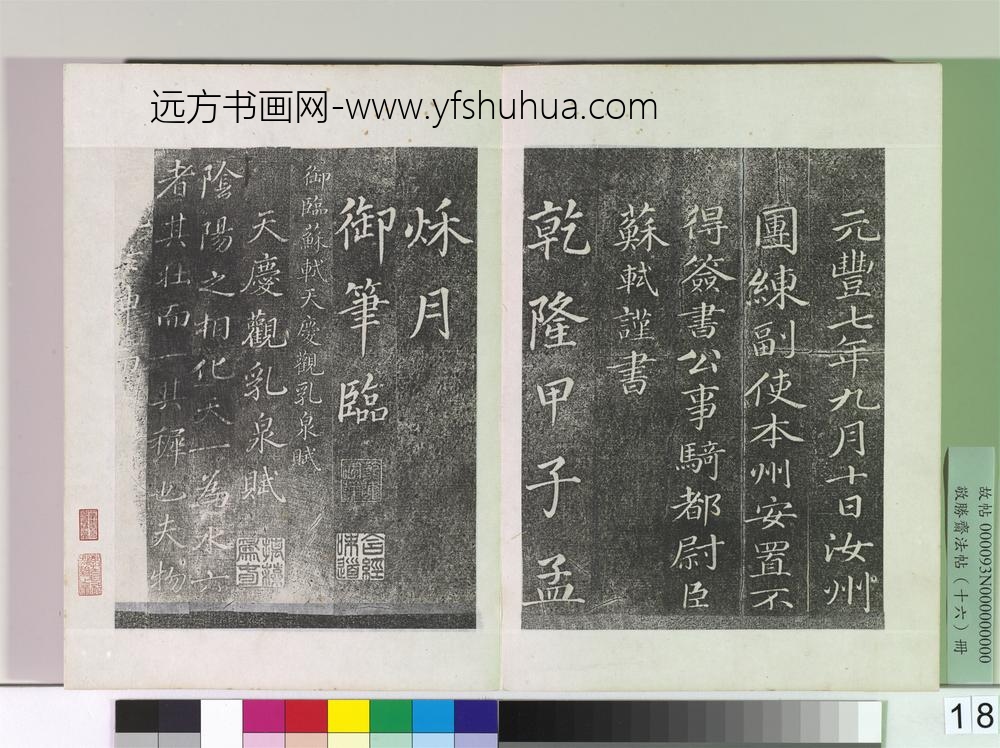 远方书画网-www.yfshuhua.com
元豐七年九月十日汝州
團練副使本州安置不
得簽書公事騎都尉臣
蘇軾謹書
乾隆甲子孟
秌月
御筆臨
御臨蘇軾天慶觀乳泉賦
天慶觀乳泉賦
陰陽之相化天一為水六
者其壯而一其穉也夫物
含經味道
故帖000093N000000000
敬勝齋法帖（十六）冊
18